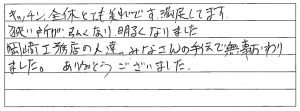 キッチン、全体とても美化です。満足してます。
狭い所が広くなり、明るくなりました
岡崎工務店の人達、みなさんの手伝で無事おわり
ました。 ありがとうございました。